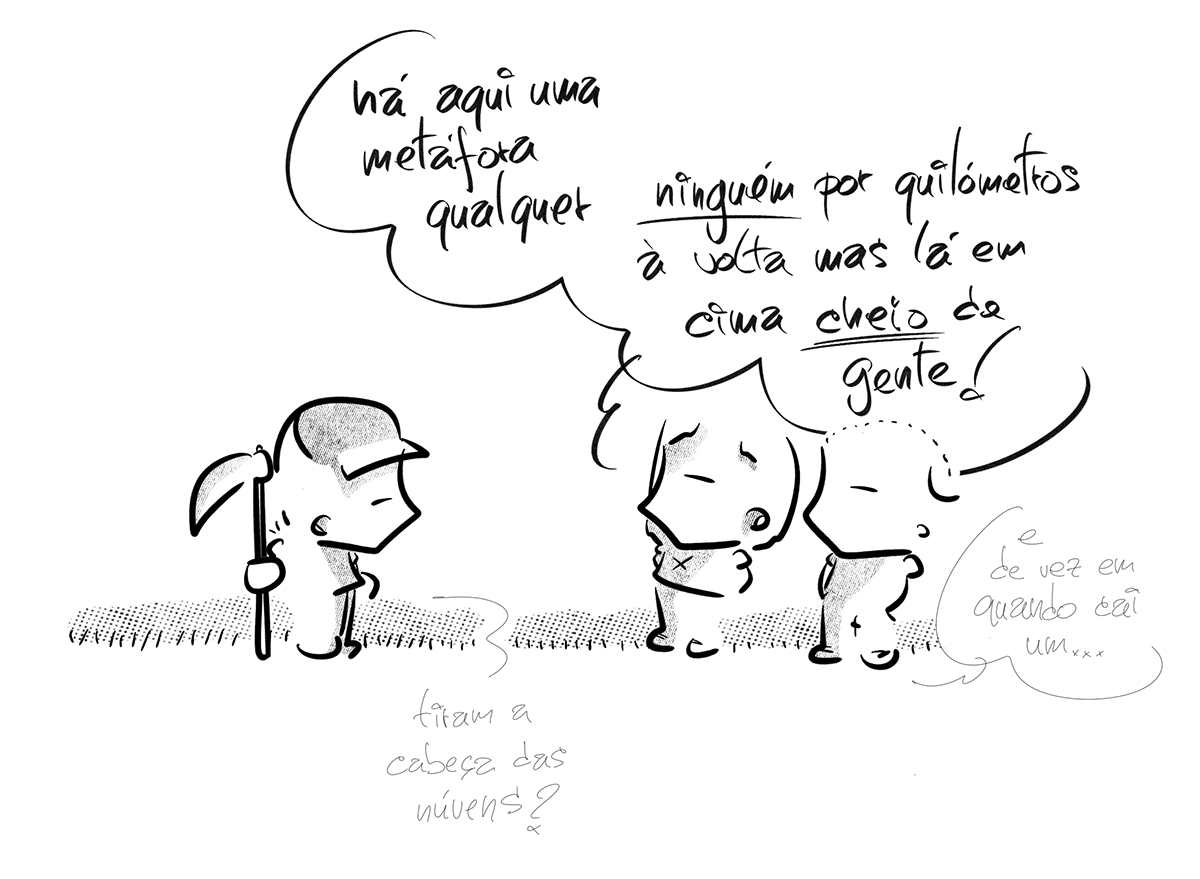 há aqui uma
metáfora
qualquer
ninguém por quilómetros
à volta mas lá em
cima cheio de
gente!
e
de vez em
quando cai
um...
tiram a
cabeça das
núvens?